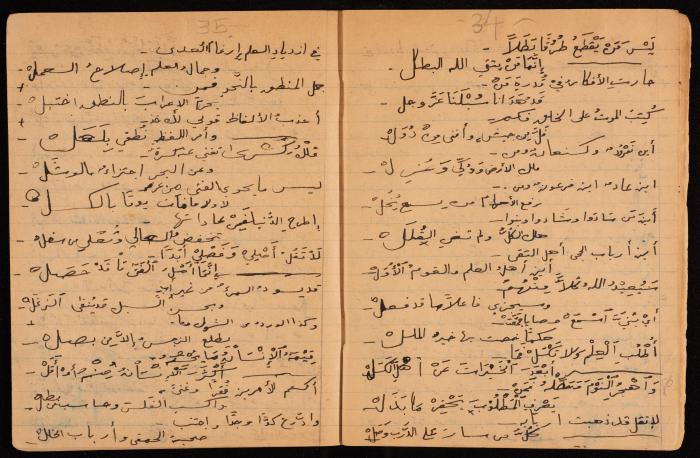 34
ليس من يقطع طرقا بطلا
إنما من يتقي الله البطل
حارت الأفكار في قدرة من
قد هدانا سبلنا عز وجل
كتب الموت على الخلق فكم
فل من جيش وأفنى من دول
أين نمرود وكنعان ومن
ملك الأرض وولى وعزل
أين عاد أين فرعون ومن
رفع الأهرام من يسمع يخل
أين من سادوا وشادوا وبنوا
هلك الكل ولم تغن القلل
أين أرباب الحجى أهل التقى
أين أهل العلم والقوم الأول
سيعيد الله كلا منهم
وسيجزي فاعلا ما قد فعل
أي بني اسمع وصايا جمعت
حكما خصت بها خير الملل
أطلب العلم ولا تكسل فما
أبعد الخيرات عن أهل الكسل
واهجر النوم وحصله فمن
يعرف المطلوب يحقر ما بذل
لا تقل قد ذهبت أربابه
كل من سار على الدرب وصل
35
في ازدياد العلم إرغام العدى
وجمال العلم إصلاح العمل
جمل المنطق بالنحو فمن
حرم الاعراب بالنطق اختبل
أعذب الألفاظ قولي لك خذ
وأمر اللفظ نطقي بلعل
ملك كسرى تغني عنه كسرة
وعن البحر اجتزاء بالوشل
ليس ما يحوي الفتى من عزمه
لا ولا ما فات يوما بالكسل
إطرح الدنيا فمن عاداتها
تخفض العالي وتعلي من سفل
لا تقل أصلي وفصلي أبدا
إنما أصل الفتى ما قد حصل
قد يسود المرء من غير أب
وبحسن السبك قد ينفى الزغل
وكذا الورد من الشوك وما
يطلع النرجس إلا من بصل
قيمة الإنسان ما يحسنه
أكثر الإنسان منه أو أقل
أكتم الأمرين فقرا وغنى
واكسب الفلس وحاسب من بطل
وادرع كدا وجدا واجتنب
صحبة الحمقى وأرباب الخلل